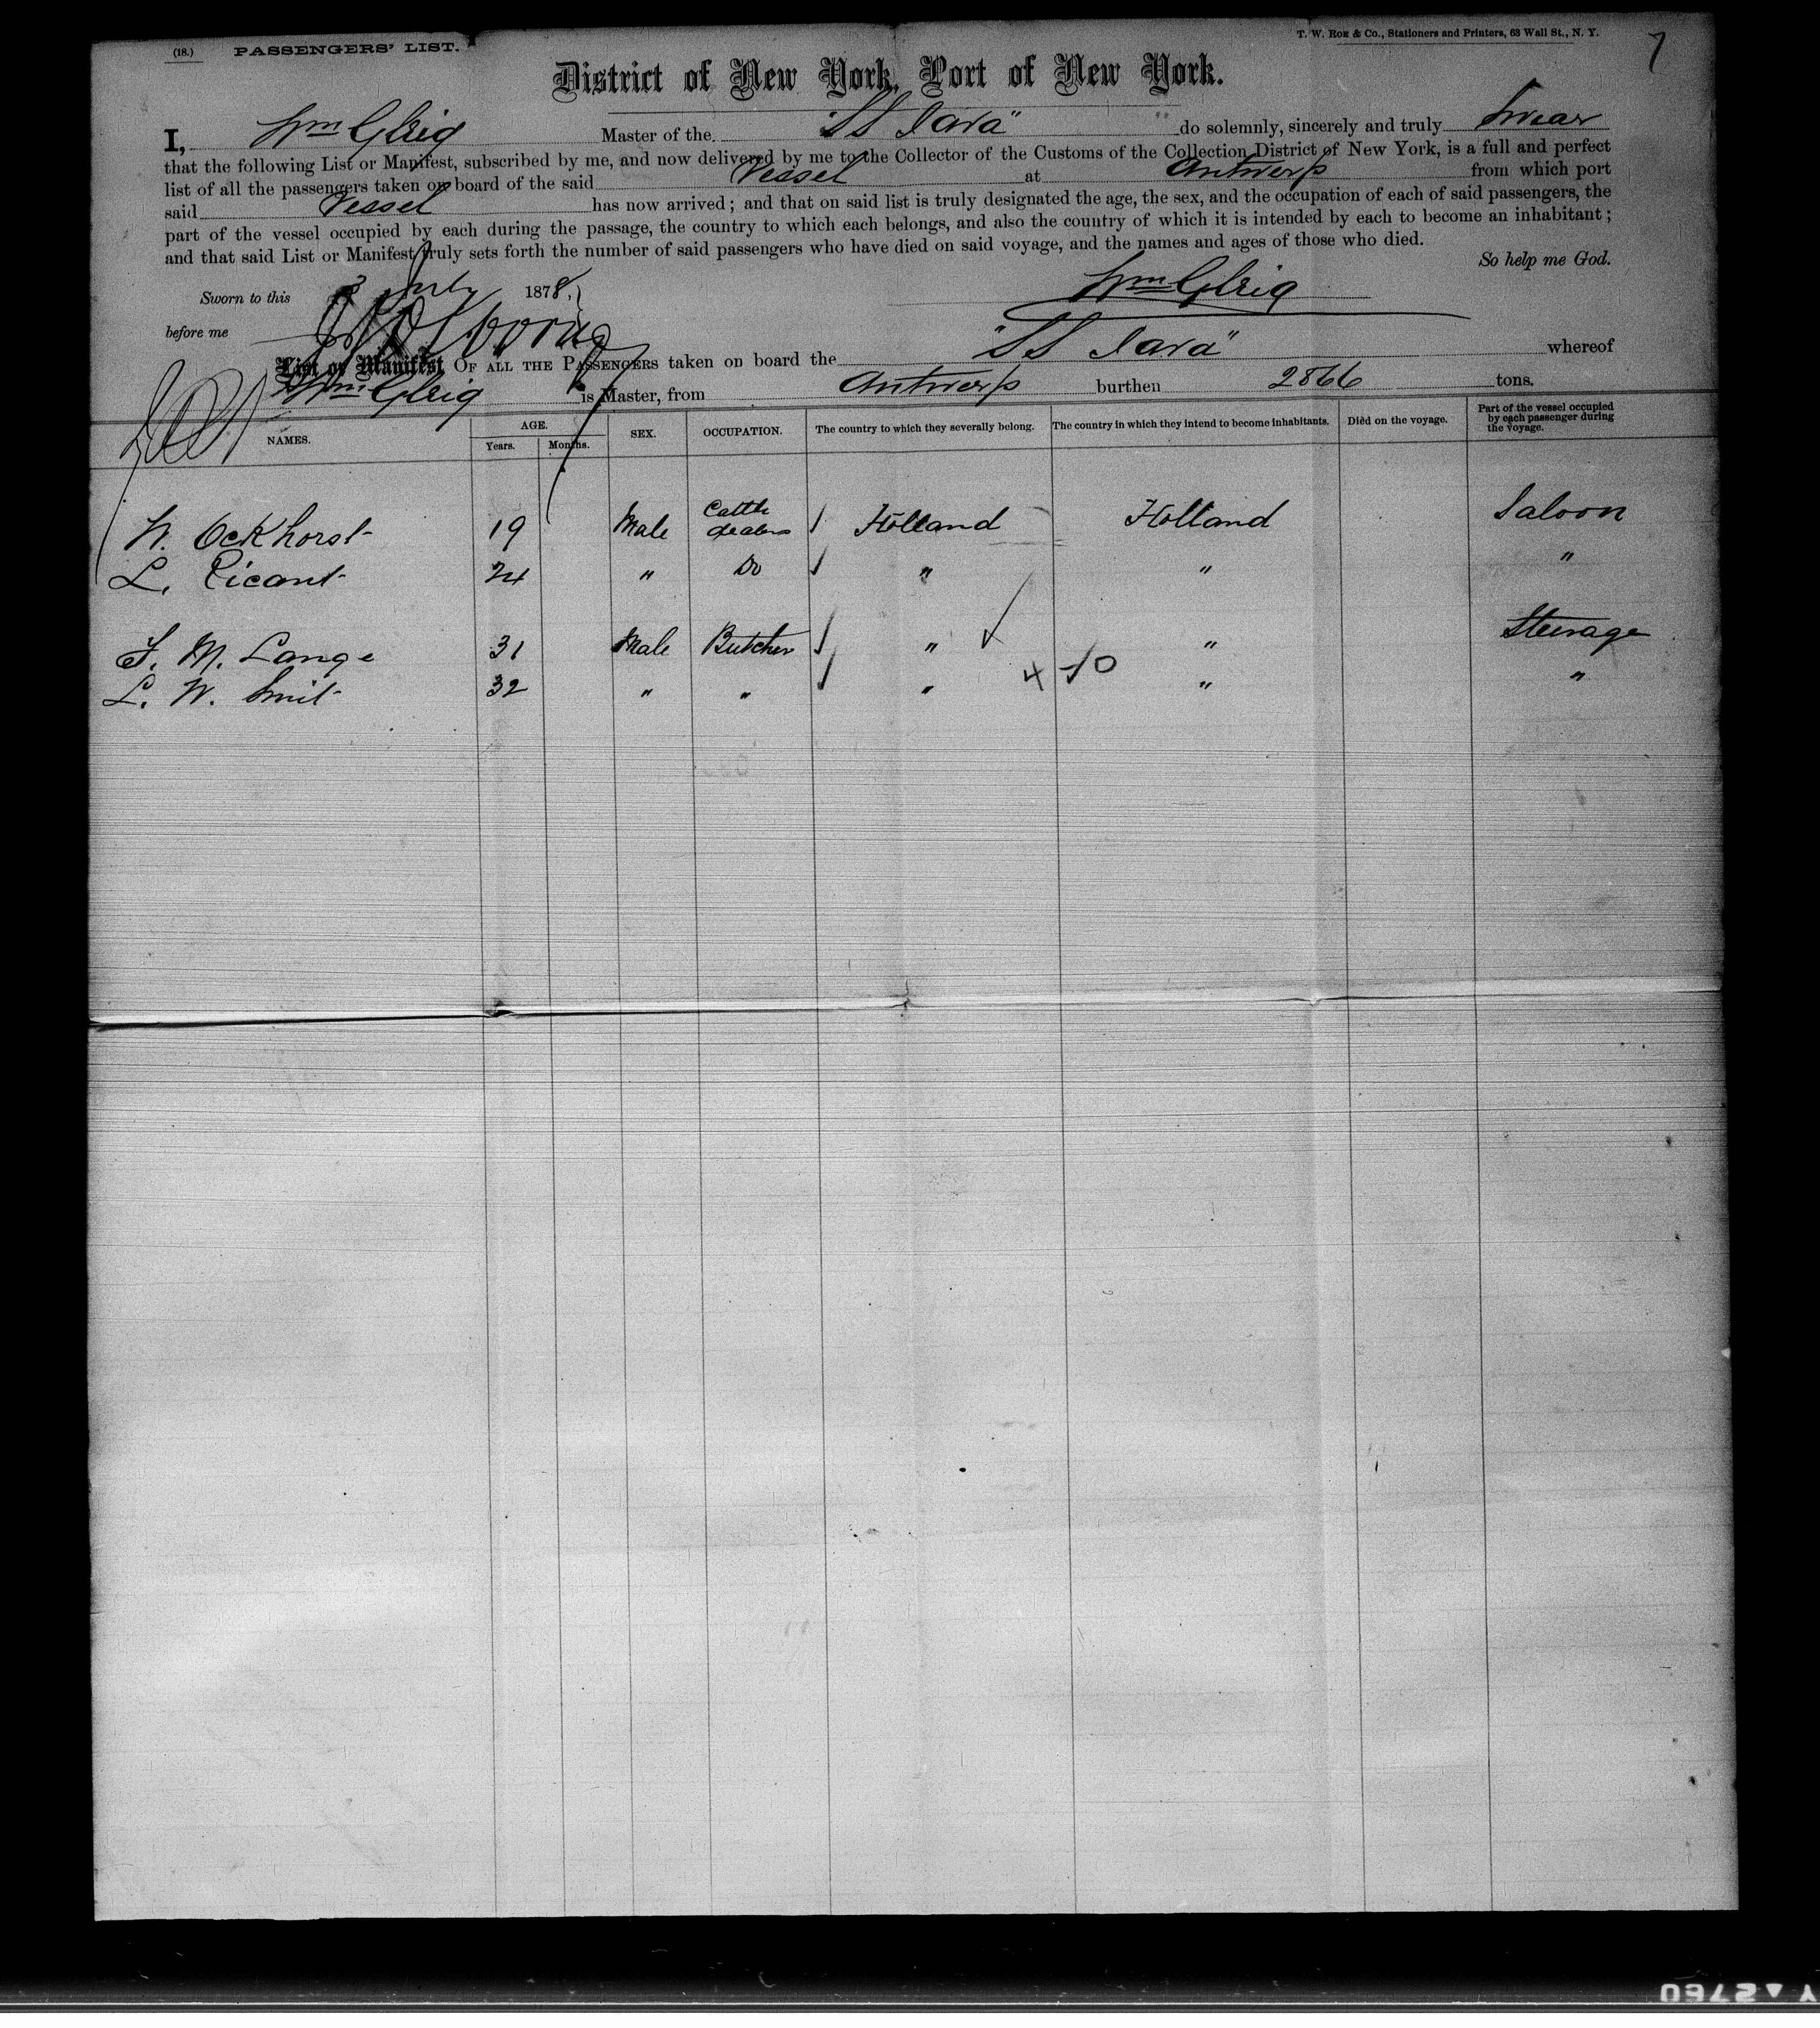 (18.) PASSENGERS' LIST.
T. W. Roe & Co., Stationers and Printers, 63 Wall St., N. Y.
7
District of New York, Port of New York.
I, Wm Gleig Master of the "SS Java" do solemnly, sincerely and truly Swear
that the following List or Manifest, subscribed by me, and now delivered by me to the Collector of the Customs of the Collection District of New York, is a full and perfect
list of all the passengers taken on board of the said Vessel at Antwerp from which port
said Vessel has now arrived; and that on said list is truly designated the age, the sex, and the occupation of each of said passengers, the
part of the vessel occupied by each during the passage, the country to which each belongs, and also the country of which it is intended by each to become an inhabitant;
and that said List or Manifest truly sets forth the number of said passengers who have died on said voyage, and the names and ages of those who died.
So help me God.
Sworn to this 3 July 1878,
Wm Gleig
before me
List or Manifest OF ALL THE PASSENGERS taken on board the "SS Java" whereof
Wm Gleig is Master, from Antwerp burthen 2866 tons.
NAMES. AGE. Years. Months. SEX. OCCUPATION. The country to which they severally belong. The country in which they intend to become inhabitants. Died on the voyage. Part of the vessel occupied by each passenger during the voyage.
W. Ockhorst 19 Male Cattle dealers Holland Holland Saloon
L. Picant 24 " Do " " "
F. M. Lange 31 Male Butcher " " Steerage
L. W. Smit 32 " " " 4 - 10 " "